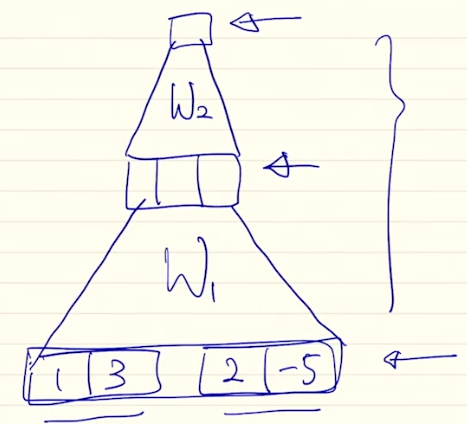 W₂
W₁
1 3 2 -5